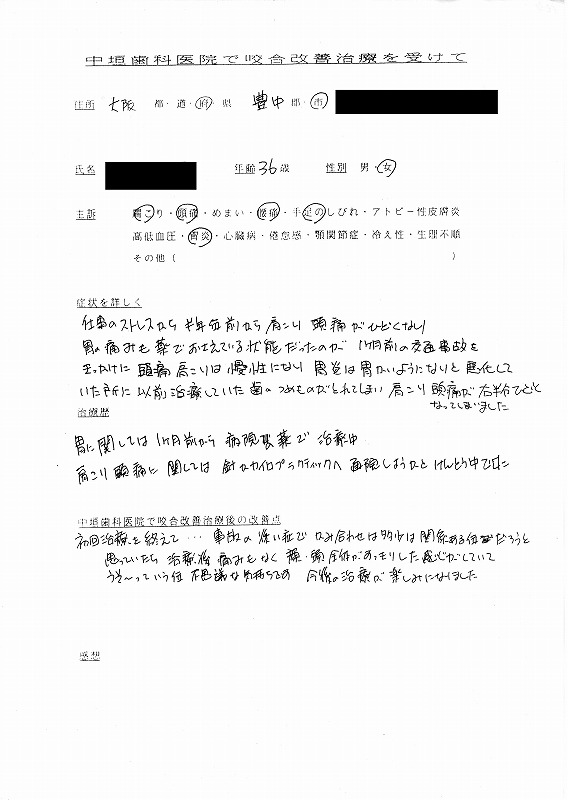 中垣歯科医院で咬合改善治療を受けて
住所 大阪 都・道・府・県 豊中 郡・市
氏名 年齢 36歳 性別 男・女
主訴 肩こり・頭痛・めまい・腰痛・手足のしびれ・アトピー性皮膚炎
高低血圧・胃炎・心臓病・倦怠感・顎関節症・冷え性・生理不順
その他( )
症状を詳しく
仕事のストレスから半年位前から肩こり 頭痛がひどくなり
胃の痛みも薬でおさえている状態だったのが 1ヶ月前の交通事故を
きっかけに頭痛肩こりは慢性になり 胃炎は胃かいようになりと悪化して
いた所に以前治療していた歯のつめものがとれてしまい 肩こり頭痛が右半分ひどく
なってしまいました
治療歴
胃に関しては1ヶ月前から病院製薬で治療中
肩こり頭痛に関しては針かカイロプラクティックへ通院しようかとけんとう中でした
中垣歯科医院で咬合改善治療後の改善点
初回治療を終えて… 事故の後い症でかみ合わせは多少は関係ある位だろうと
思っていたら治療後痛みもなく 頭全体がすっきりした感じがしていて
うそ〜っていう位不思議な気持ちです 今後の治療が楽しみになりました
感想